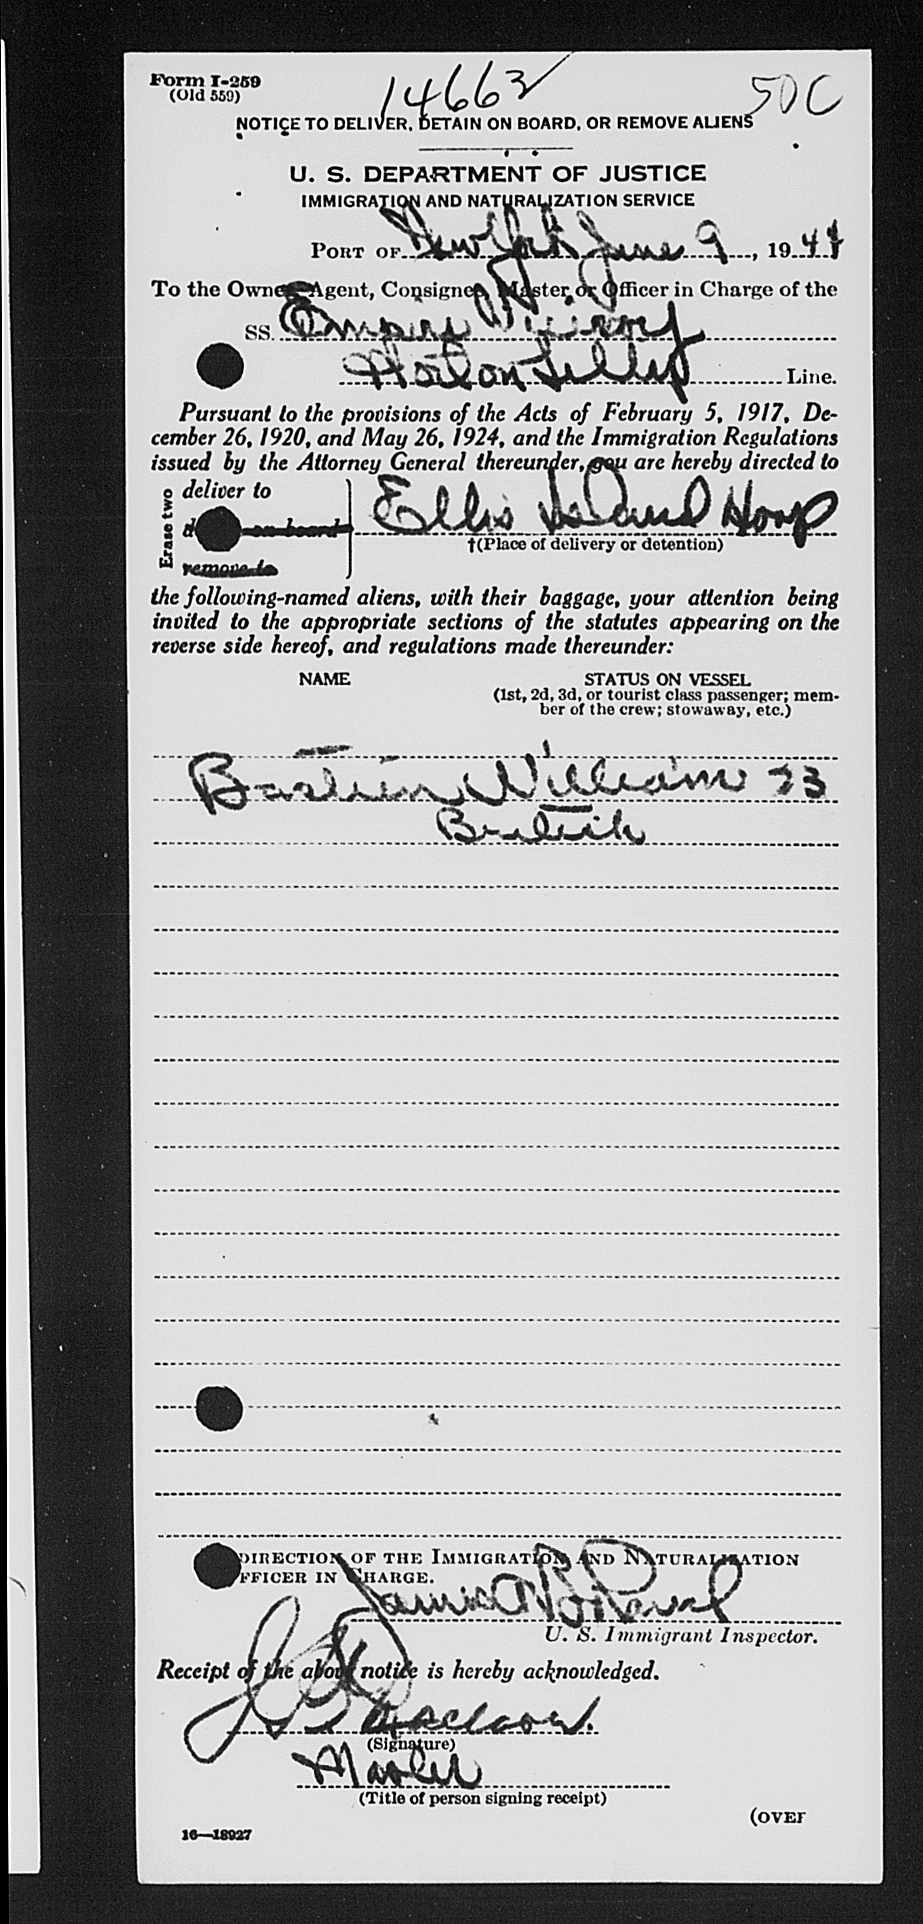 Form I-259
(Old 559)
14663
50C
NOTICE TO DELIVER, DETAIN ON BOARD, OR REMOVE ALIENS
U. S. DEPARTMENT OF JUSTICE
IMMIGRATION AND NATURALIZATION SERVICE
PORT OF New York June 9, 1944
To the Owner, Agent, Consignee, Master, or Officer in Charge of the
SS. Empire
Norton Lilly Line.
Pursuant to the provisions of the Acts of February 5, 1917, De-
cember 26, 1920, and May 26, 1924, and the Immigration Regulations
issued by the Attorney General thereunder, you are hereby directed to
Erase two
deliver to
on board
remove to
Ellis Island Hosp
†(Place of delivery or detention)
the following-named aliens, with their baggage, your attention being
invited to the appropriate sections of the statutes appearing on the
reverse side hereof, and regulations made thereunder:
NAME
STATUS ON VESSEL
(1st, 2d, 3d, or tourist class passenger; mem-
ber of the crew; stowaway, etc.)
Bastien William 23
British
DIRECTION OF THE IMMIGRATION AND NATURALIZATION
OFFICER IN CHARGE.
James
U. S. Immigrant Inspector.
Receipt of the above notice is hereby acknowledged.
(Signature)
Master
(Title of person signing receipt)
(OVER
16—18927